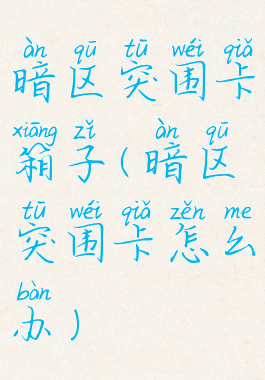 àn qū tū wéi qiǎ
暗区突围卡
xiāng zǐ àn qū
箱子(暗区
tū wéi qiǎ zěn me
突围卡怎么
bàn
办)